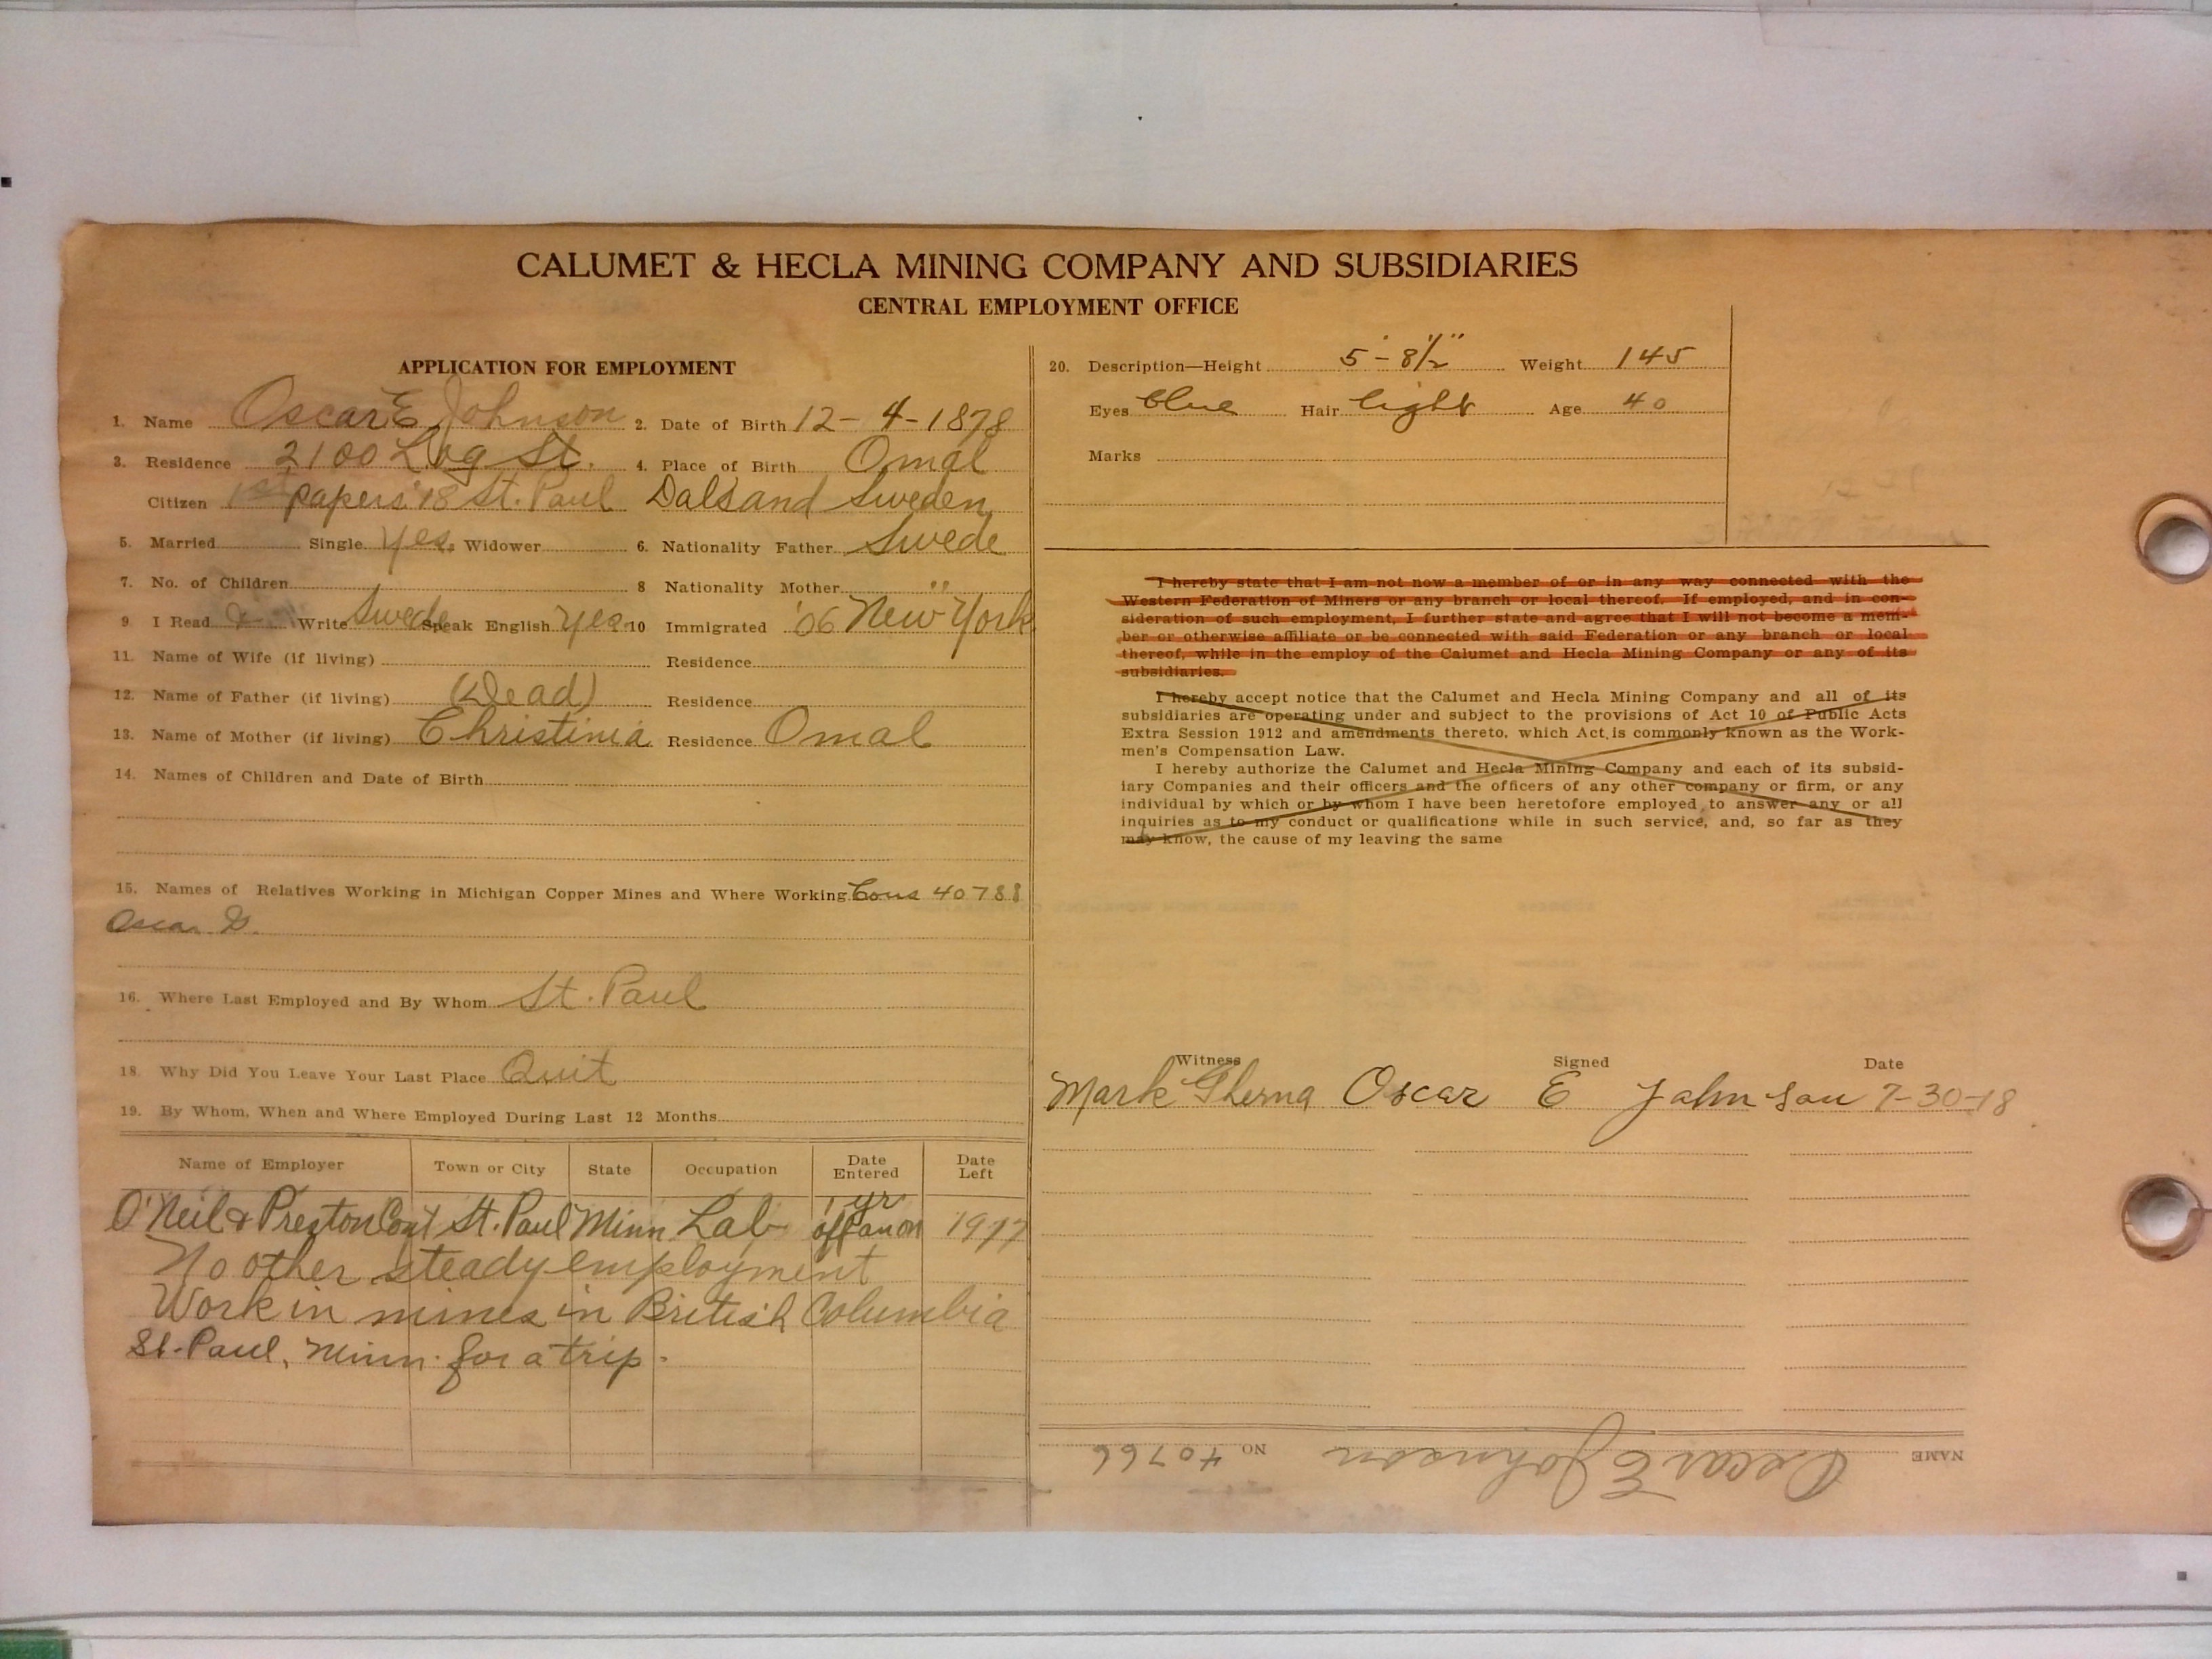 CALUMET & HECLA MINING COMPANY AND SUBSIDIARIES
CENTRAL EMPLOYMENT OFFICE
APPLICATION FOR EMPLOYMENT
1. Name Oscar E Johnson 2. Date of Birth 12-4-1878
3. Residence 2100 Log St. 4. Place of Birth Omal
Citizen 1st papers '18 St. Paul Dalsand Sweden
5. Married Single Yes. Widower 6. Nationality Father Swede
7. No. of Children 8 Nationality Mother "
9 I Read & Write Swede Speak English Yes 10 Immigrated '06 New York
11. Name of Wife (if living) Residence
12. Name of Father (if living) (Dead) Residence
13. Name of Mother (if living) Christinia Residence Omal
14. Names of Children and Date of Birth
15. Names of Relatives Working in Michigan Copper Mines and Where Working Cous 40788
Oscar G.
16. Where Last Employed and By Whom St. Paul
18. Why Did You Leave Your Last Place Quit
19. By Whom, When and Where Employed During Last 12 Months
Name of Employer Town or City State Occupation Date Entered Date Left
O'Neil & Preston Cont St. Paul Minn Lab 1 yr off an on 1917
No other steady employment
Work in mines in British Columbia
St. Paul, Minn. for a trip.
20. Description—Height 5'-8½" Weight 145
Eyes blue Hair light Age 40
Marks
I hereby state that I am not now a member of or in any way connected with the
Western Federation of Miners or any branch or local thereof. If employed, and in con-
sideration of such employment, I further state and agree that I will not become a mem-
ber or otherwise affiliate or be connected with said Federation or any branch or local
thereof, while in the employ of the Calumet and Hecla Mining Company or any of its
subsidiaries.
I hereby accept notice that the Calumet and Hecla Mining Company and all of its
subsidiaries are operating under and subject to the provisions of Act 10 of Public Acts
Extra Session 1912 and amendments thereto, which Act, is commonly known as the Work-
men's Compensation Law.
I hereby authorize the Calumet and Hecla Mining Company and each of its subsid-
iary Companies and their officers and the officers of any other company or firm, or any
individual by which or by whom I have been heretofore employed, to answer any or all
inquiries as to my conduct or qualifications while in such service, and, so far as they
may know, the cause of my leaving the same
Witness Signed Date
Mark Oscar E Johnson 7-30-18
NAME Oscar E Johnson NO 40766